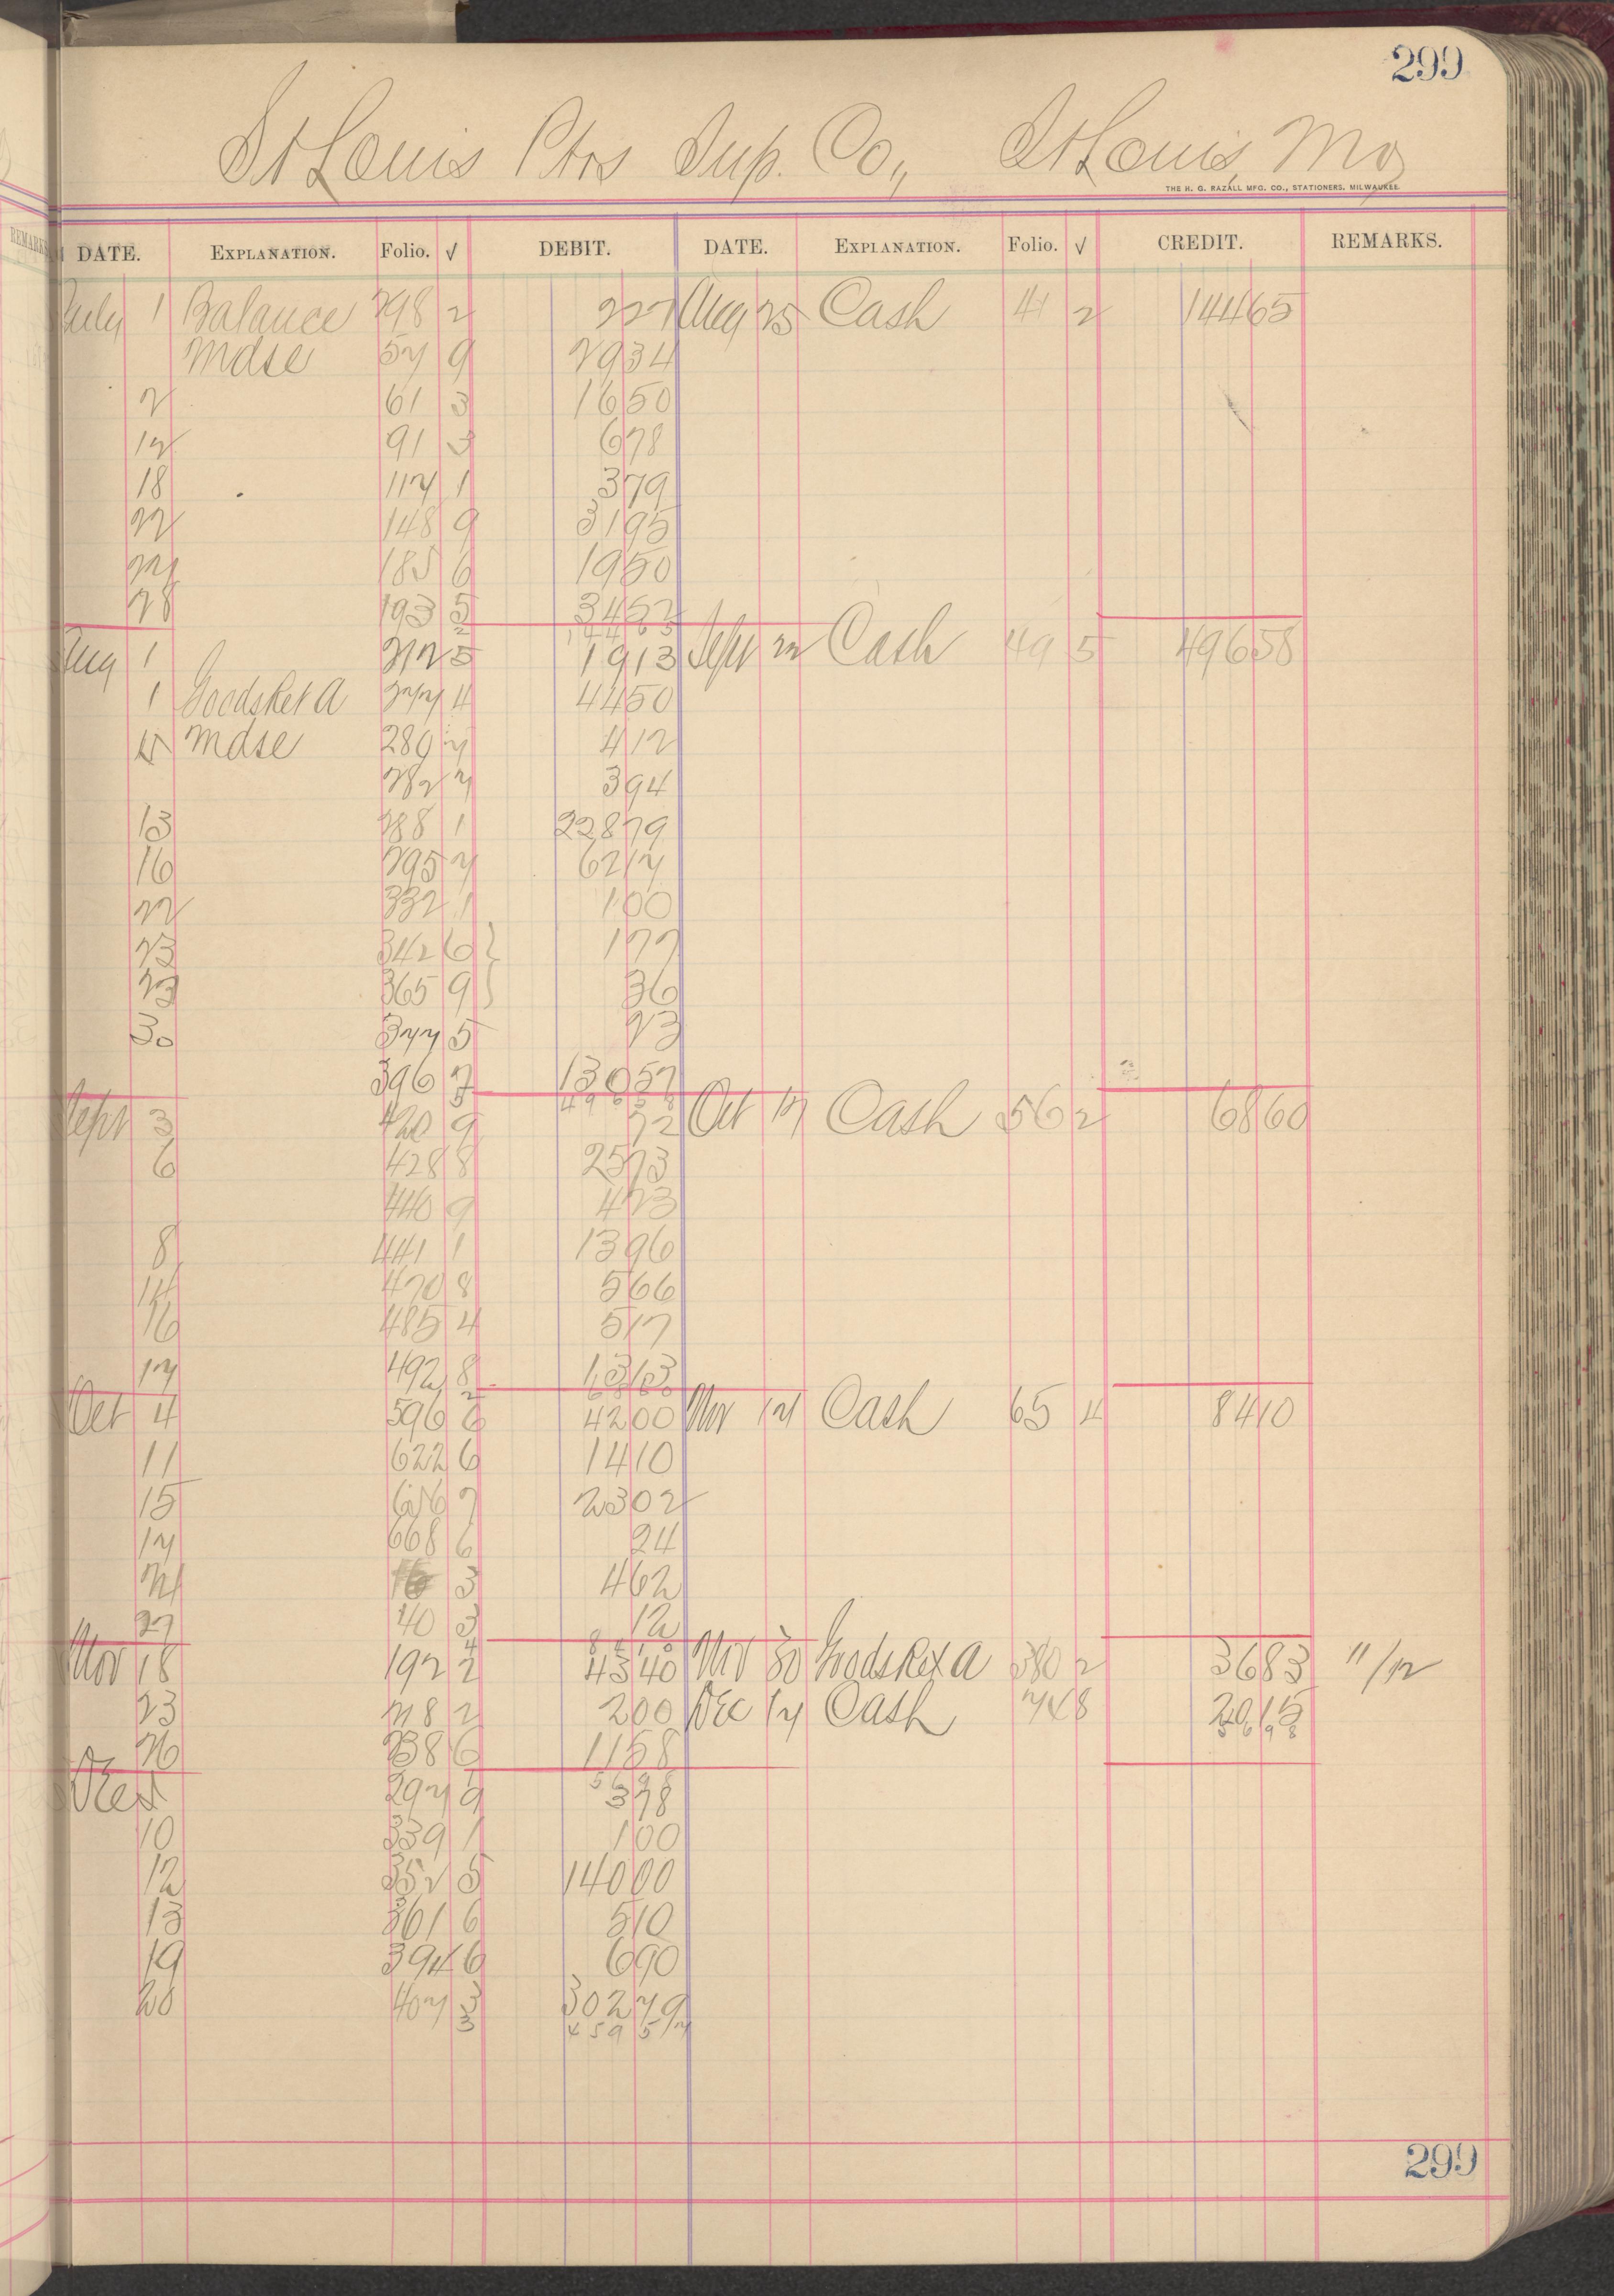 299
St Louis Ptrs Sup. Co., St Louis, Mo,
THE H. G. RAZALL MFG. CO., STATIONERS, MILWAUKEE.
DATE. EXPLANATION. Folio. √ DEBIT. DATE. EXPLANATION. Folio. √ CREDIT. REMARKS.
July 1 Balance 298 2 227 Aug 25 Cash 41 2 14465
Mdse 57 9 2934
2 61 3 1650
12 91 3 678
18 117 1 379
22 148 9 3195
24 185 6 1950
28 193 5 3452
14465
Aug 1 212 5 1913 Sept 22 Cash 49 5 49658
1 Goods Ret A 277 4 4450
5 Mdse 280 7 412
282 7 394
13 288 1 22879
16 295 7 6217
22 332 1 100
23 342 6 177
23 365 9 36
30 377 5 23
396 7 13057
49658
Sept 3 420 9 72 Oct 17 Cash 56 2 6860
6 428 8 2573
440 9 423
8 441 1 1396
14 470 8 566
16 485 4 517
17 492 8 1313
6860
Oct 4 596 6 4200 Nov 14 Cash 65 4 8410
11 622 6 1410
15 656 7 2302
17 668 6 24
24 16 3 462
27 40 3 12
8410
Nov 18 192 2 4340 Nov 30 Goods Ret A 380 2 3683 11/12
23 218 2 200 Dec 17 Cash 74 8 2015
5698
26 238 6 1158
5698
Dec 297 9 378
10 339 1 100
12 352 5 14000
13 361 6 510
19 394 6 690
20 407 3 30279
45957
299